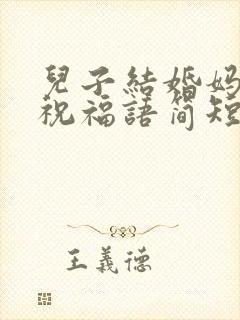 兒子結婚媽
祝福語简短
王義德